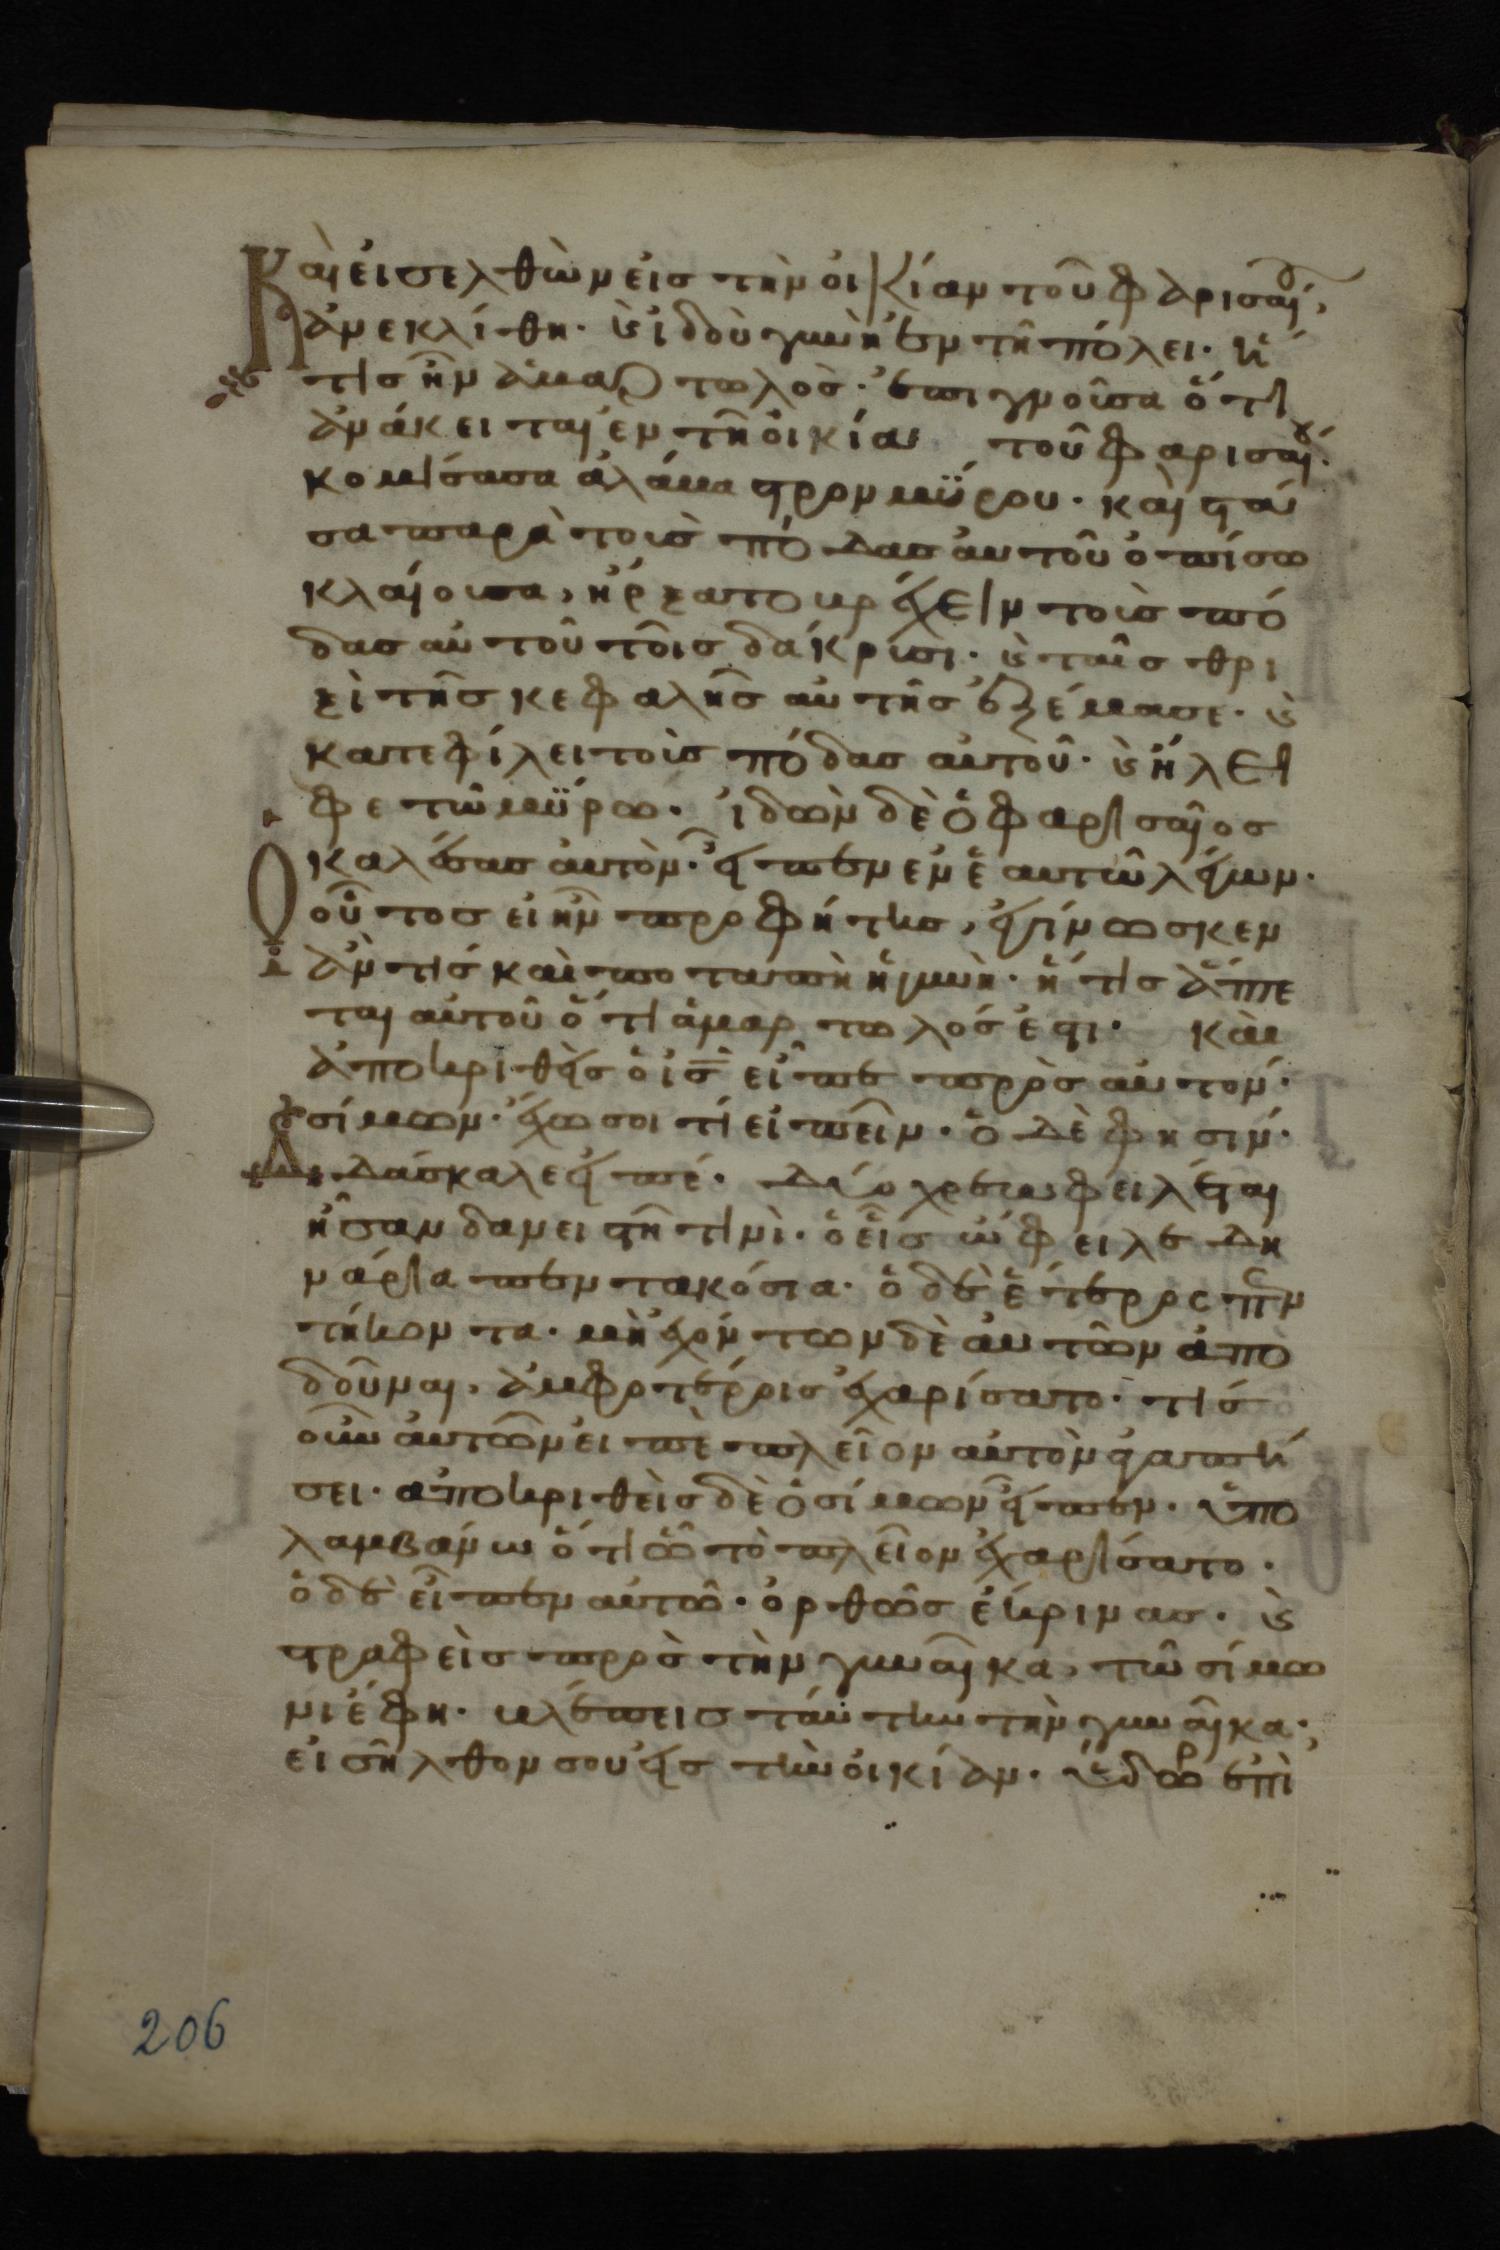 Καὶ εἰσελθὼν εἰς τὴν οἰκίαν τοῦ φαρισαίου,
ἀνεκλίθη. καὶ ἰδοὺ γυνὴ ἐν τῇ πόλει. ἥ
τις ἦν ἁμαρτωλός. ἐπιγνοῦσα ὅτι
ἀνάκειται ἐν τῇ οἰκία τοῦ φαρισαίου.
κομίσασα ἀλάβαστρον μύρου. καὶ στᾶ
σα παρὰ τοὺς πόδας αὐτοῦ ὀπίσω
κλαίουσα, ἤρξατο βρέχειν τοὺς πό
δας αὐτοῦ τοῖς δάκρυσι. καὶ ταῖς θρι
ξὶ τῆς κεφαλῆς αὐτῆς ἐξέμασε. καὶ
κατεφίλει τοὺς πόδας αὐτοῦ. καὶ ἤλει
φε τῶ μύρω. ἰδὼν δὲ ὁ φαρισαῖος
ὁ καλέσας αὐτὸν. εἶπεν ἐν ἑαυτῶ λέγων.
οὗτος εἰ ἦν προφήτης, ἐγίνωσκεν
ἂν τίς καὶ ποταπὴ ἡ γυνὴ. ἥτις ἅπτε
ται αὐτοῦ ὅτι ἁμαρτωλός ἐστι. καὶ
ἀποκριθεὶς ὁ ις εἶπε πρὸς αὐτον.
σίμων. ἔχω σοι τί εἰπεῖν. ὁ δὲ φησίν.
Διδάσκαλε εἰπέ. Δύο χρεωφειλέται
ἦσαν δανειστῆ τινὶ. ὁ εἷς ὤφειλε δη
νάρια πεντακόσια. ὁ δὲ ἕτερος πεν
τήκοντα. μὴ ἐχόντων δὲ αὐτῶν ἀπο
δοῦναι, ἀμφοτέροις ἐχαρίσατο. τίς
οὖν αὐτῶν εἰπὲ πλεῖον αὐτὸν ἀγαπή
σει. ἀποκριθεὶς δὲ ὁ σίμων εἶπεν. ὑπο
λαμβάνω ὅτι ὧ τὸ πλεῖον ἐχαρίσατο.
ὁ δὲ εἶπεν αὐτῶ. ὀρθῶς ἔκρινας. καὶ
στραφεὶς πρὸς τὴν γυναῖκα, τῶ σίμω
νι ἔφη. βλέπεις ταύτην τὴν γυναῖκα;
εἰσῆλθον σου εἰς τὴν οἰκίαν. ὕδωρ ἐπὶ
206